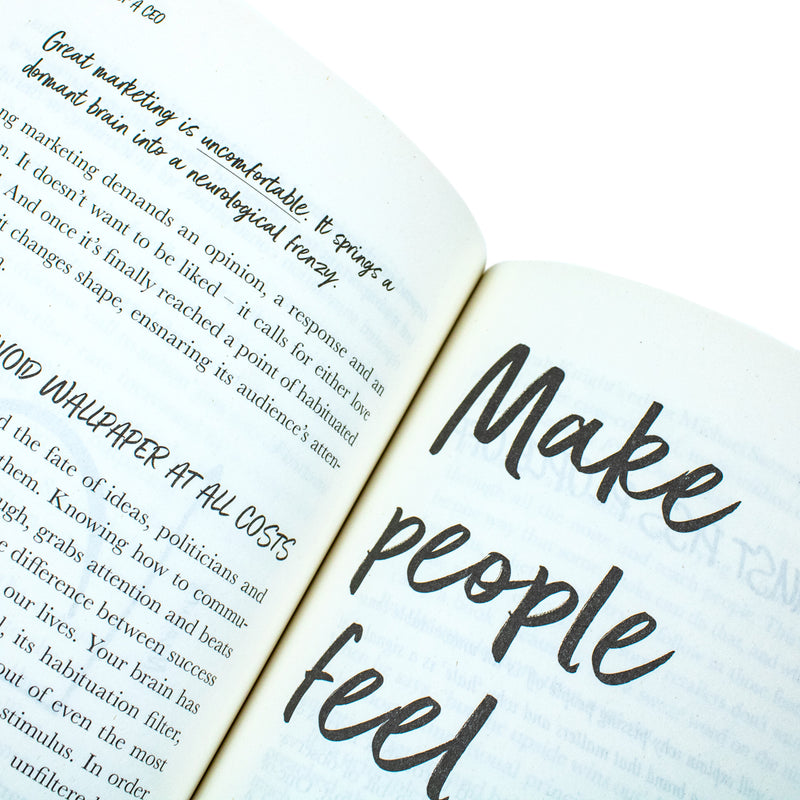 A CEO
Great marketing is uncomfortable. It springs a
dormant brain into a neurological frenzy.
marketing demands an opinion, a response and an
It doesn't want to be liked – it calls for either love
And once it's finally reached a point of habituated
it changes shape, ensnaring its audience's atten-
WALLPAPER AT ALL COSTS
the fate of ideas, politicians and
them. Knowing how to commu-
grabs attention and beats
difference between success
our lives. Your brain has
its habituation filter,
out of even the most
stimulus. In order
unfiltered
Make
people
feel